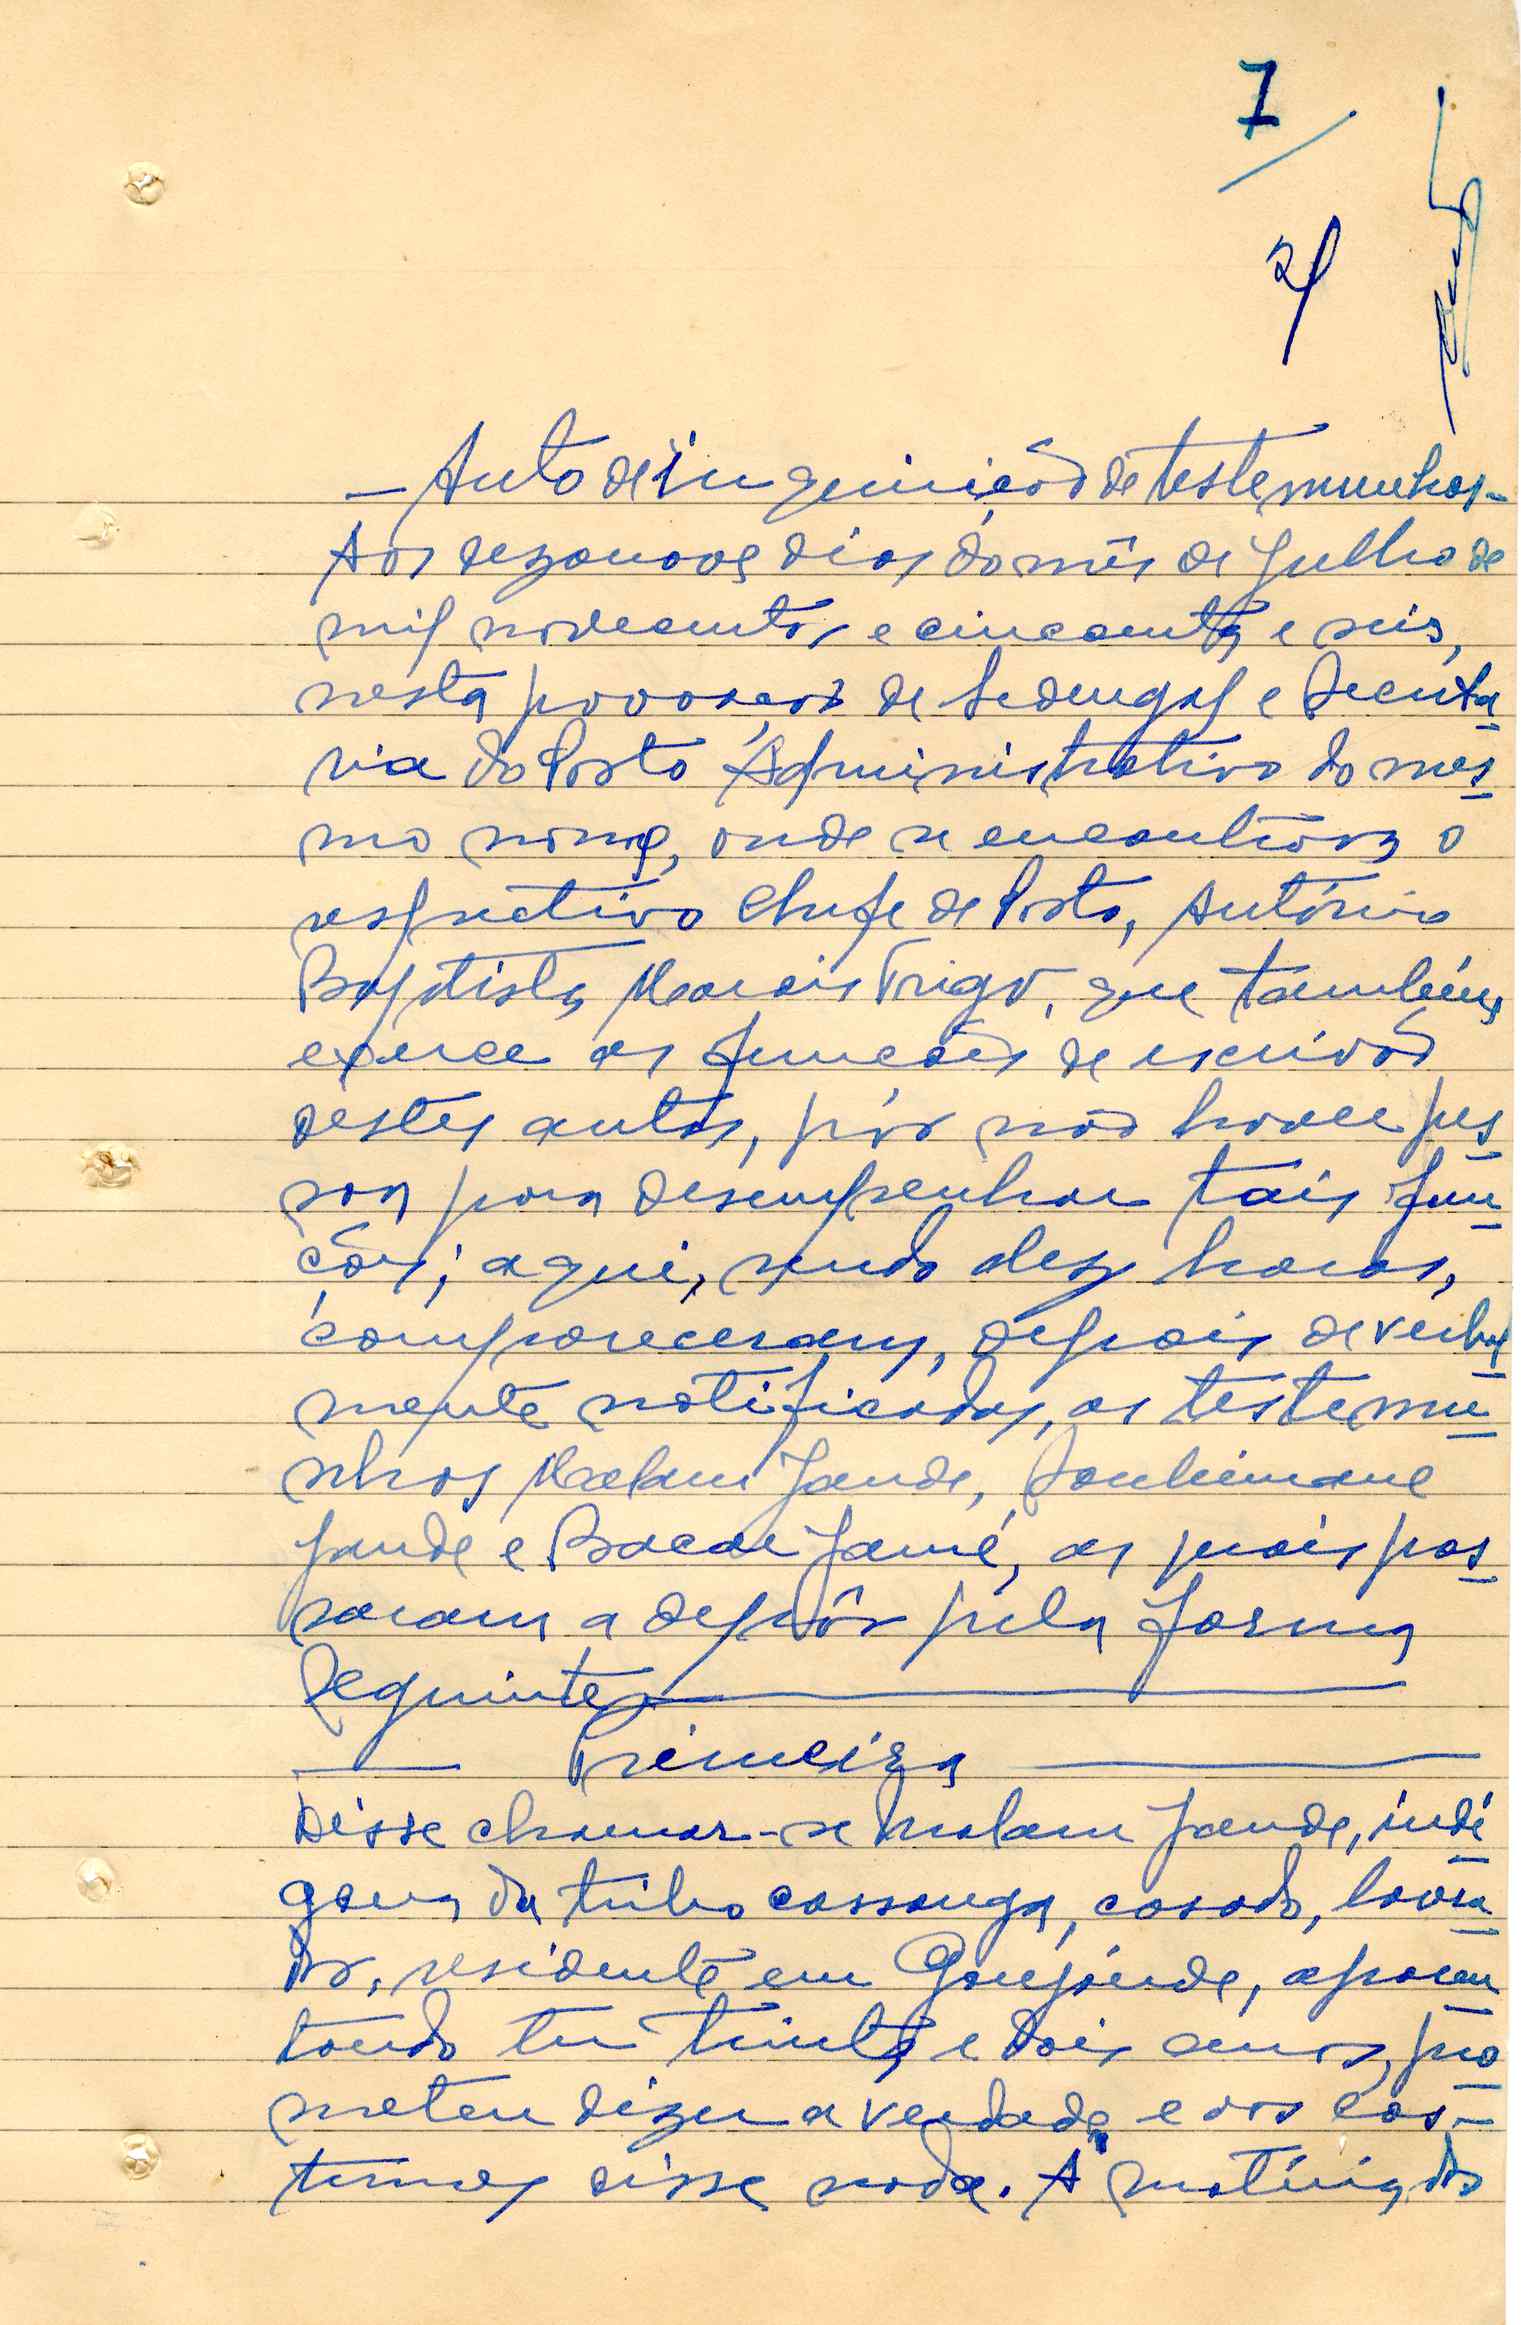 7
— Auto de inquirição de testemunhas —
Aos dezanove dias do mês de Julho de
mil novecentos e cincoenta e seis,
nesta povoação de Sedengal e Secreta
ria do Posto Administrativo do mes
mo nome, onde se encontrava o
respectivo Chefe de Posto, António
Baptista Morais Trigo, que também
exerce as funções de escrivão
destes autos, por não haver pes
soa para desempenhar tais fun
ções; aqui, sendo dez horas,
compareceram, depois de verbal
mente notificadas, as testemu
nhas Malam Jande, Soulеimane
Jande e Bacar Jamé, as quais pas
saram a depôr pela forma
Seguinte
— Primeira —
Disse chamar-se Malam Jande, indí
gena da tribo cassanga, casado, lavra
dor, residente em, aparen
tando ter trinta e dois anos, pro
meteu dizer a verdade e aos cos-
tumes disse nada. À matéria dos